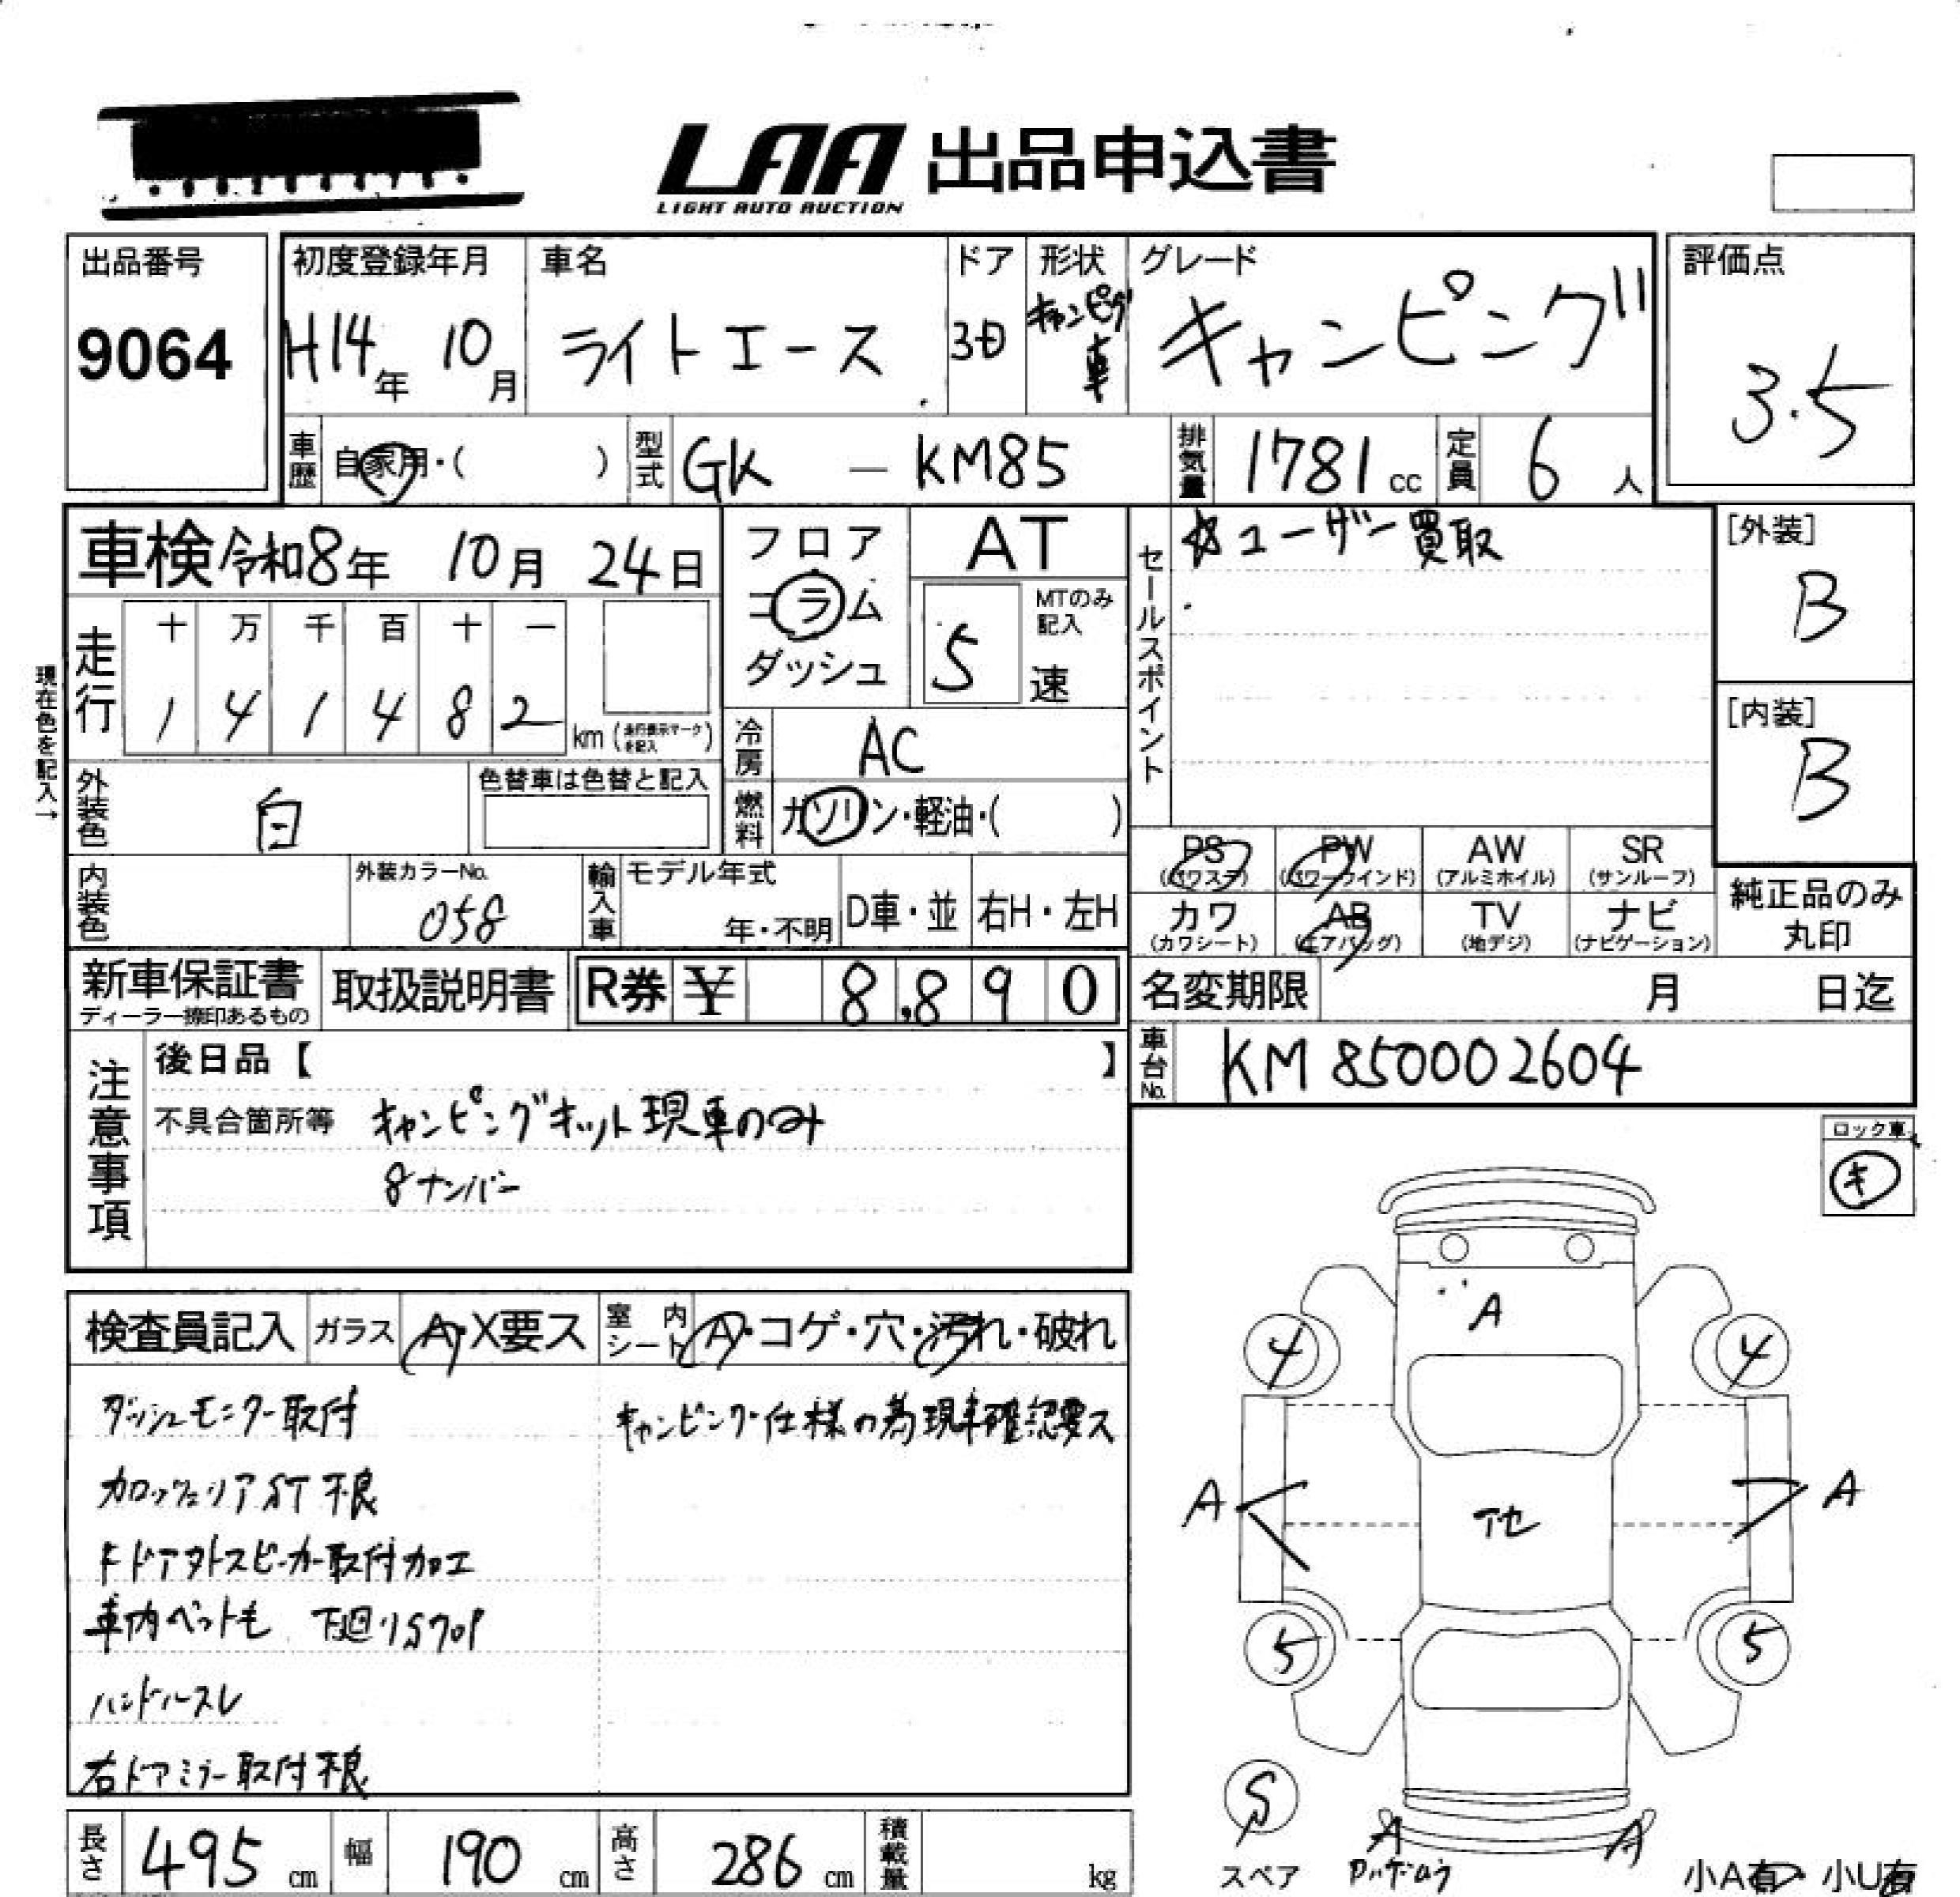 LAA 出品申込書
LIGHT AUTO AUCTION
出品番号
9064
初度登録年月
H14年 10月
車名
ライトエース
ドア
3D
形状
キャンピング車
グレード
キャンピング
評価点
3.5
車歴 自家用・( )
型式 GK — KM85
排気量 1781 cc
定員 6 人
車検 令和8年 10月 24日
走行
十 万 千 百 十 一
1 4 1 4 8 2 km
(走行表示マークを記入)
現在色を記入→
外装色 白
色替車は色替と記入
内装色
外装カラーNo.
058
フロア
コラム
ダッシュ
AT
5 速
MTのみ記入
冷房 AC
燃料 ガソリン・軽油・( )
輸入車 モデル年式
年・不明
D車・並
右H・左H
セールスポイント
☆ユーザー買取
[外装]
B
[内装]
B
PS
(パワステ)
PW
(パワーウインド)
AW
(アルミホイル)
SR
(サンルーフ)
カワ
(カワシート)
AB
(エアバッグ)
TV
(地デジ)
ナビ
(ナビゲーション)
純正品のみ
丸印
新車保証書
ディーラー捺印あるもの
取扱説明書
R券 ¥ 8,890
名変期限 月 日迄
車台No. KM850002604
注意事項
後日品【 】
不具合箇所等 キャンピングキット現車のみ
8ナンバー
ロック車
キ
検査員記入
ガラス A・X要ス
室内シート A・コゲ・穴・汚れ・破れ
ダッシュモニター取付
カロッツェリアST不良
Fドアアウトスピーカー取付加工
車内ペット毛 下廻りS
ハンドルスレ
右ドアミラー取付不良
キャンピング仕様の為現車確認要ス
A
4
4
A
A
5
5
S
スペア
A
A
小A有 小U有
長さ 495 cm
幅 190 cm
高さ 286 cm
積載量 kg